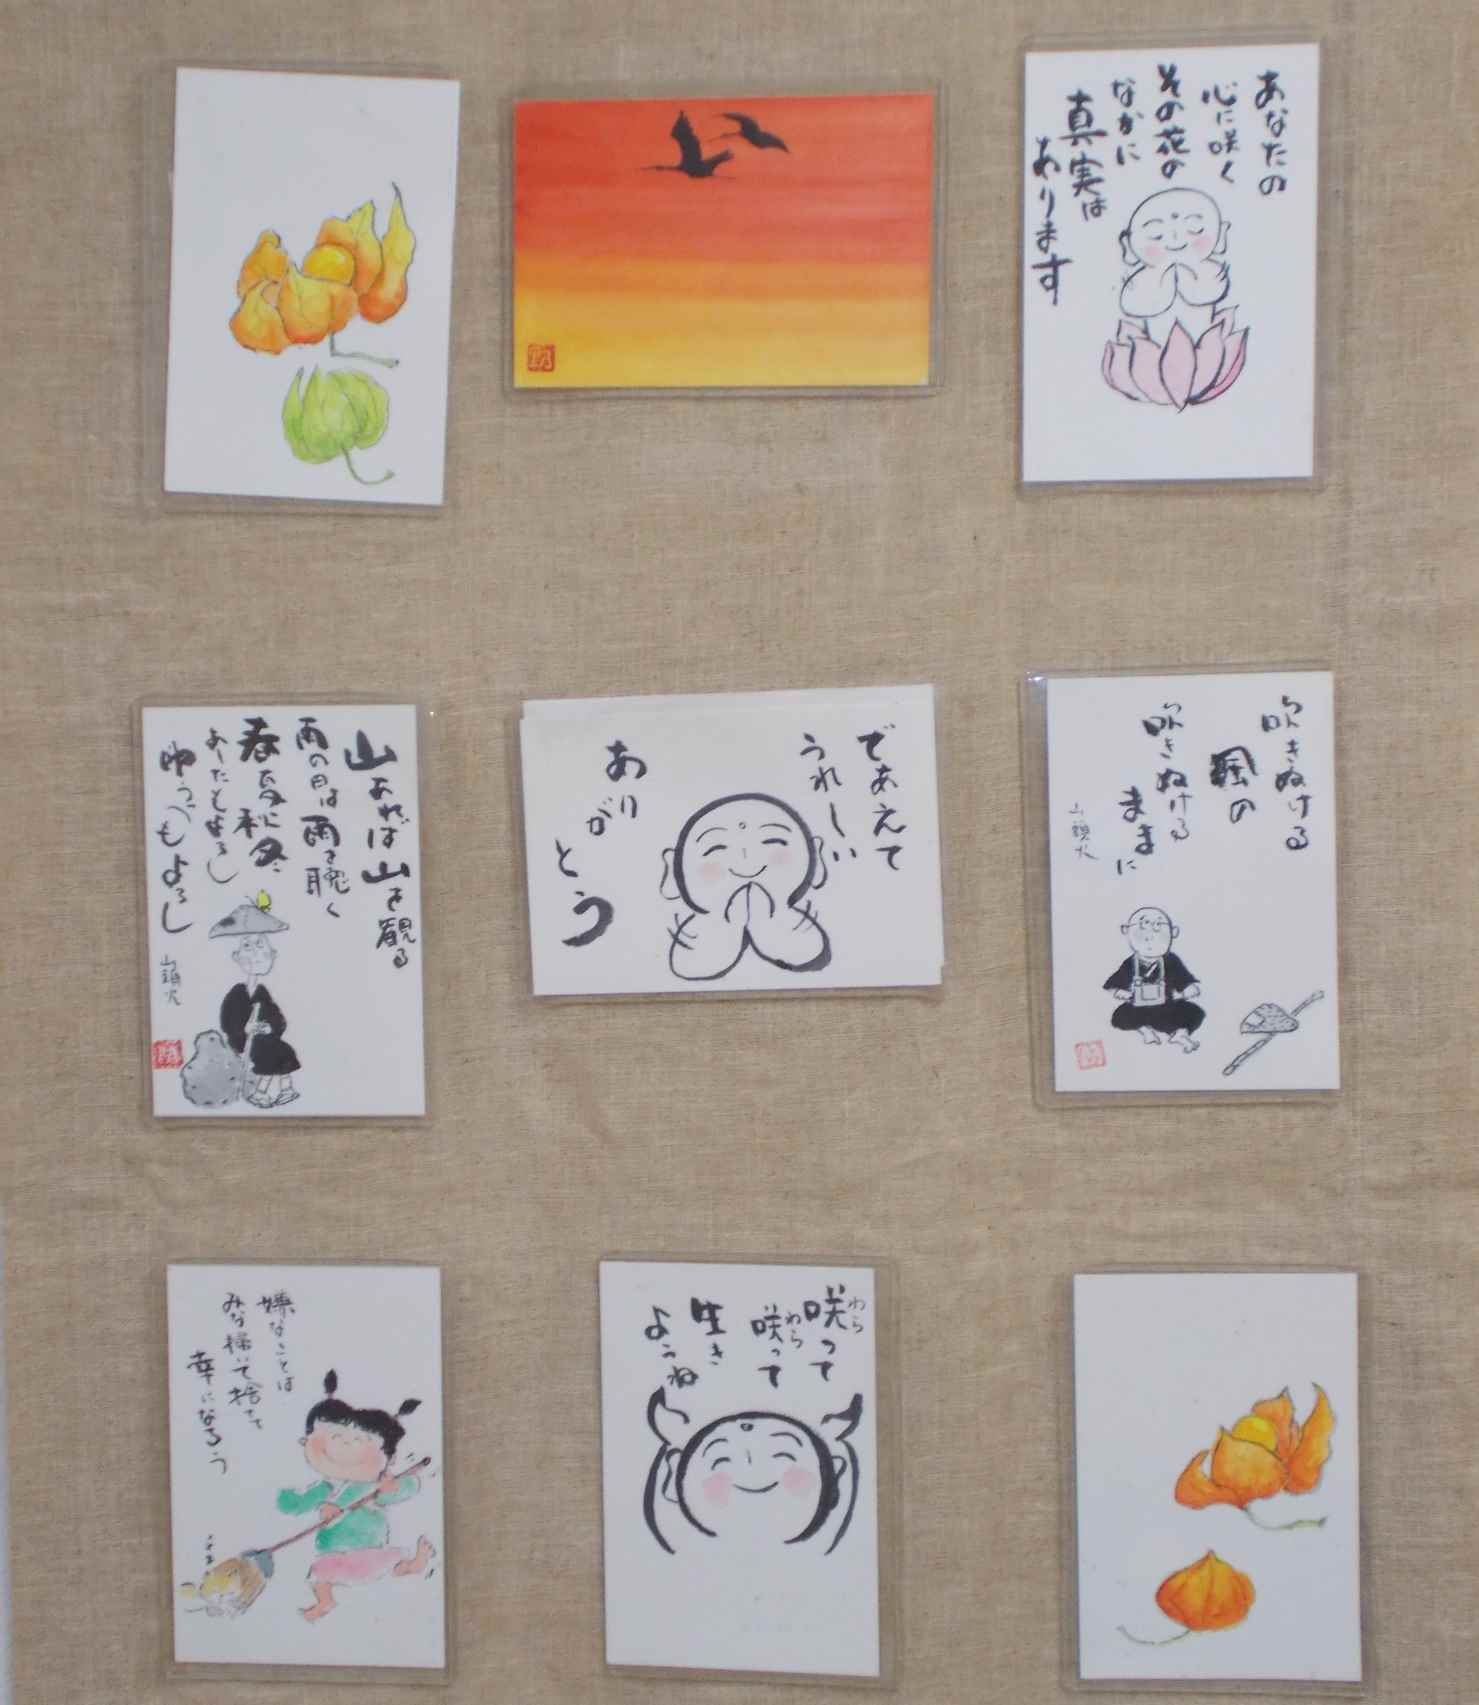 あなたの
心に咲く
その花の
なかに
真実は
あります
山あれば山を観る
雨の日は雨を聴く
春夏秋冬
あしたもよろし
ゆうべもよろし
山頭火
であえて
うれしい
あり
が
とう
吹きぬける
風の
吹きぬける
ままに
山頭火
嫌なことは
みな掃いて捨てて
幸になろう
咲って
わら
咲って
わら
生き
ようね